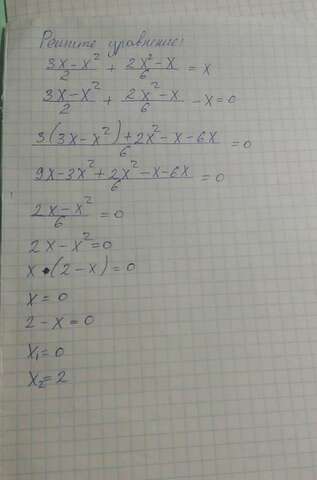 Решите уравнение:
(3x-x²)/2 + (2x²-x)/6 = x
(3x-x²)/2 + (2x²-x)/6 -x=0
(3(3x-x²)+2x²-x-6x)/6 =0
(9x-3x²+2x²-x-6x)/6 =0
(2x-x²)/6 =0
2x-x²=0
x•(2-x)=0
x=0
2-x=0
x₁=0
x₂=2